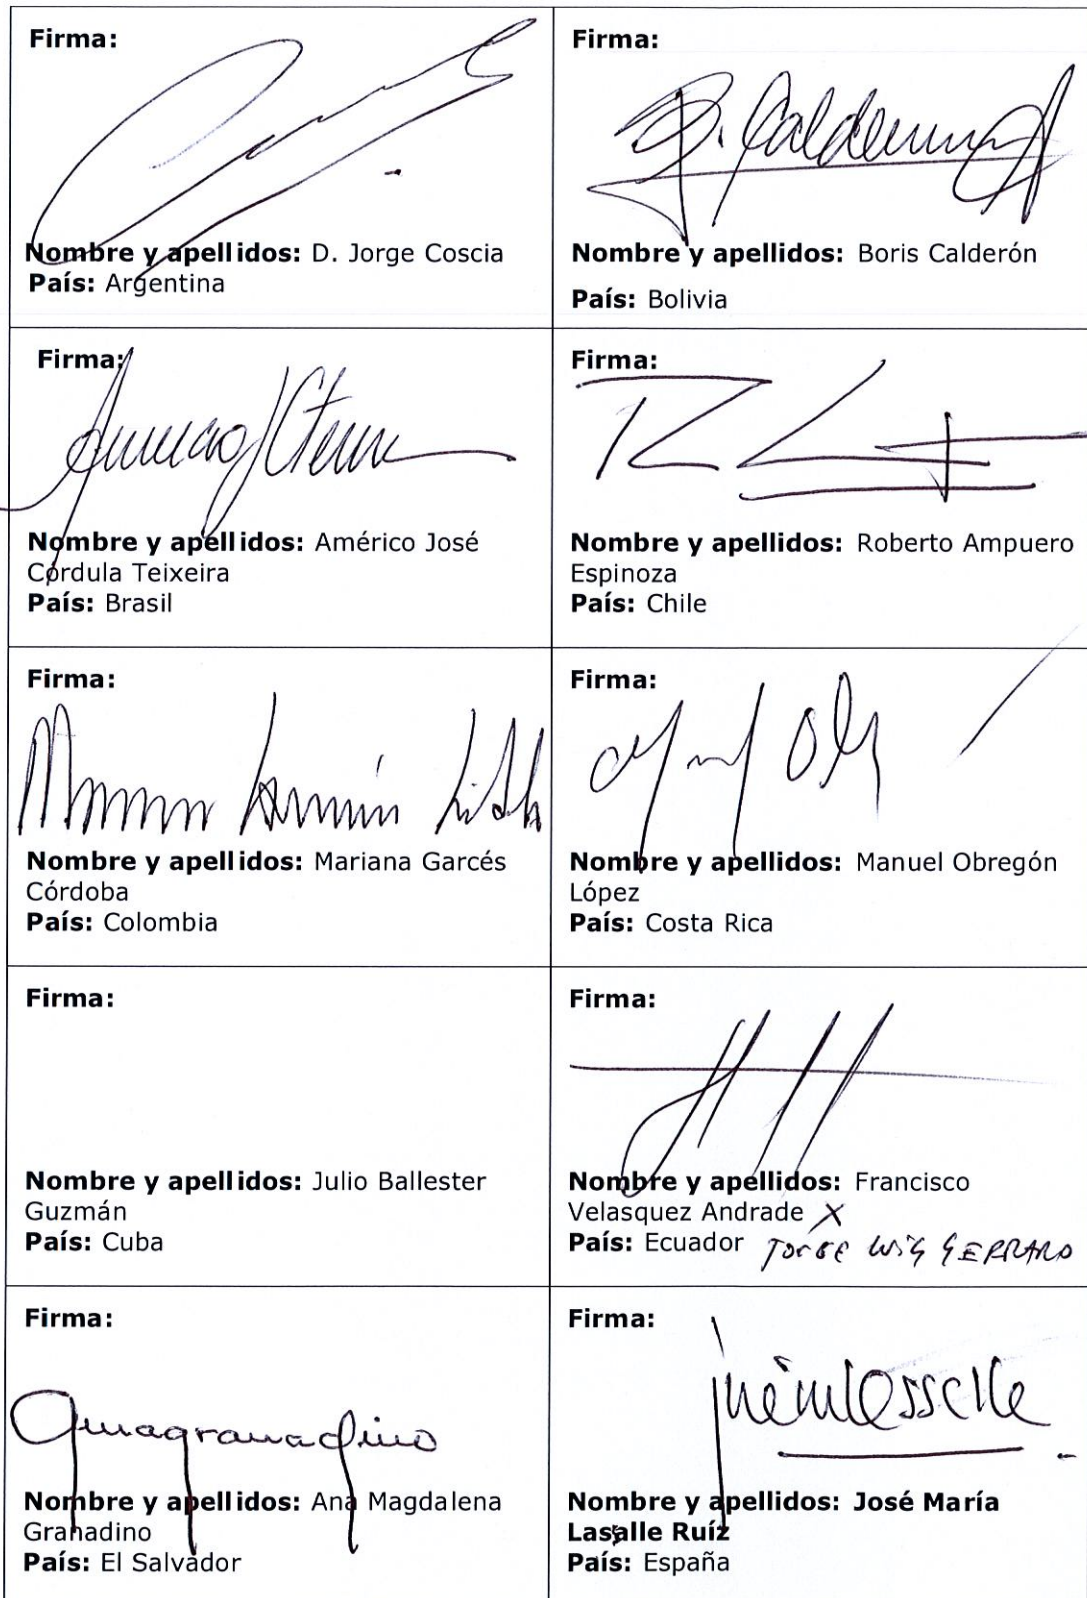 Firma:
Nombre y apellidos: D. Jorge Coscia
País: Argentina
Firma:
B. Calderón
Nombre y apellidos: Boris Calderón
País: Bolivia
Firma:
Nombre y apellidos: Américo José
Córdula Teixeira
País: Brasil
Firma:
Nombre y apellidos: Roberto Ampuero
Espinoza
País: Chile
Firma:
Nombre y apellidos: Mariana Garcés
Córdoba
País: Colombia
Firma:
Nombre y apellidos: Manuel Obregón
López
País: Costa Rica
Firma:
Nombre y apellidos: Julio Ballester
Guzmán
País: Cuba
Firma:
Nombre y apellidos: Francisco
Velasquez Andrade X
País: Ecuador
Firma:
Anagranadino
Nombre y apellidos: Ana Magdalena
Granadino
País: El Salvador
Firma:
Nombre y apellidos: José María
Lasalle Ruíz
País: España